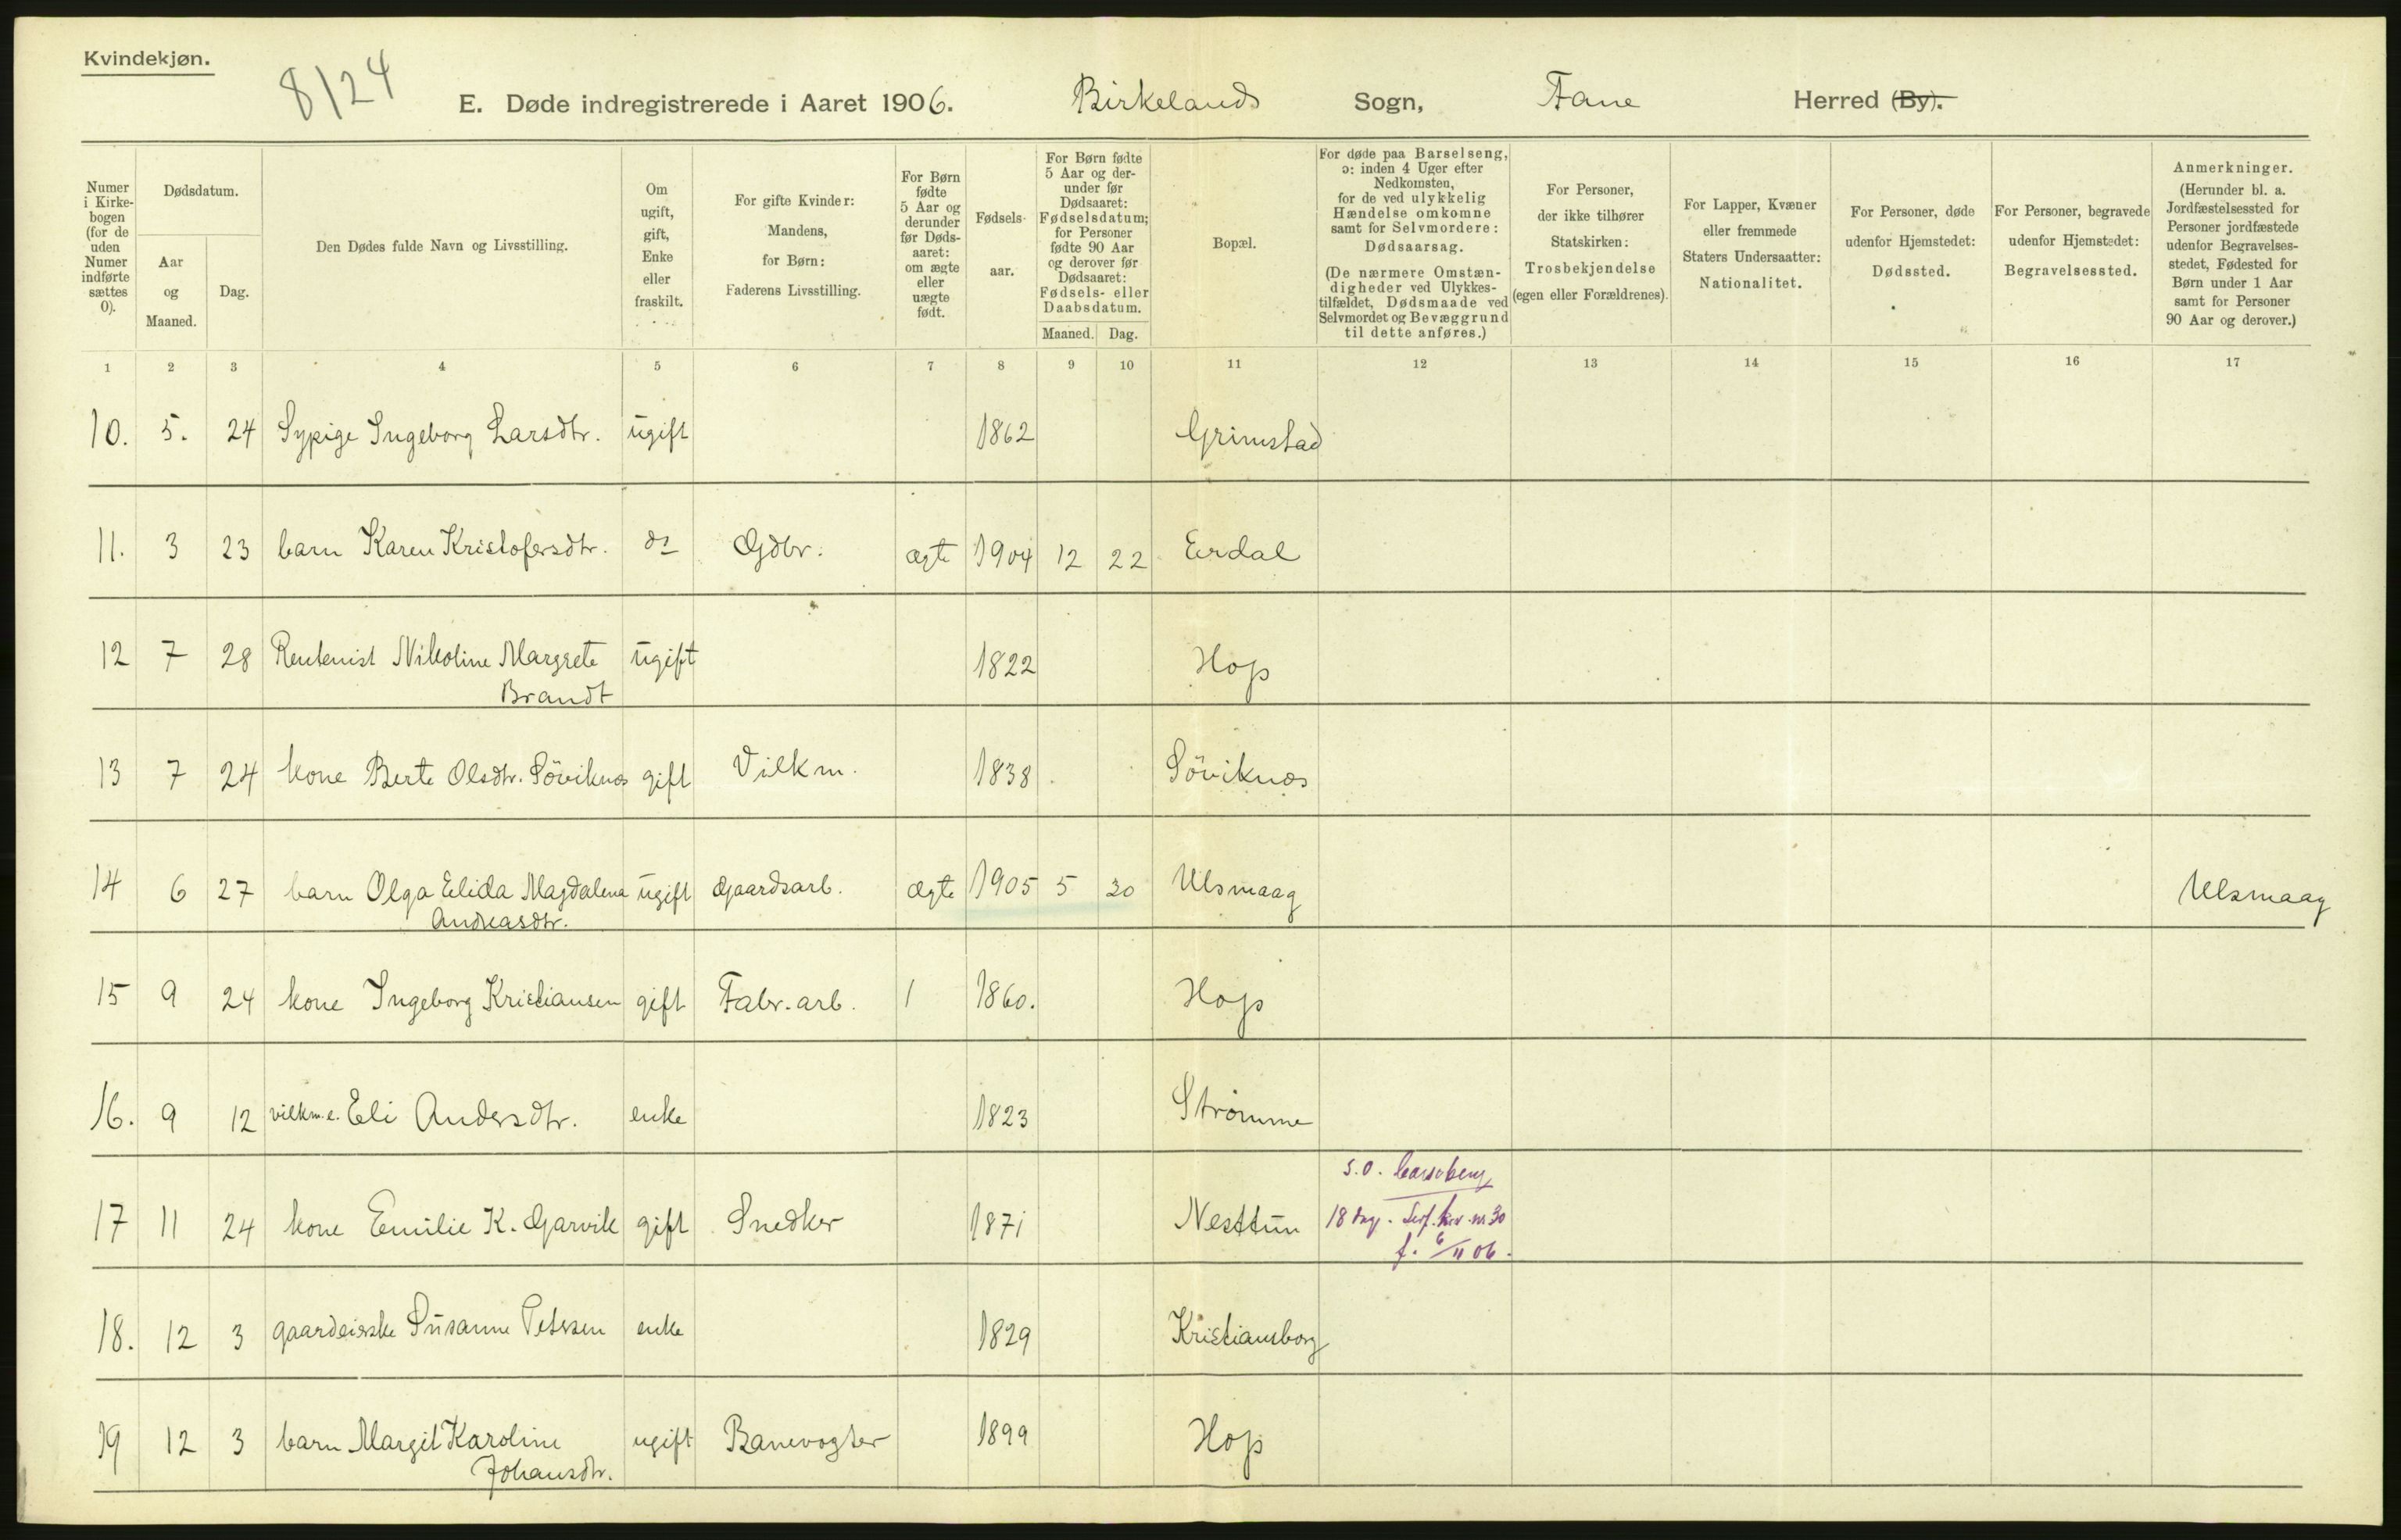 Kvindekjøn.
8/24
E. Døde indregistrerede i Aaret 1906. Birkelands Sogn, Fane Herred (By).
Numer i Kirkebogen (for de uden Numer indførte sættes 0).
Dødsdatum.
Aar og Maaned.
Dag.
Den Dødes fulde Navn og Livsstilling.
Om ugift, gift, Enke eller fraskilt.
For gifte Kvinder: Mandens, for Børn: Faderens Livsstilling.
For Børn fødte 5 Aar og derunder før Dødsaaret: om ægte eller uægte født.
Fødselsaar.
For Børn fødte 5 Aar og derunder før Dødsaaret: Fødselsdatum; for Personer fødte 90 Aar og derover før Dødsaaret: Fødsels- eller Daabsdatum.
Maaned. Dag.
Bopæl.
For døde paa Barselseng, ɔ: inden 4 Uger efter Nedkomsten, for de ved ulykkelig Hændelse omkomne samt for Selvmordere: Dødsaarsag.
(De nærmere Omstændigheder ved Ulykkestilfældet, Dødsmaade ved Selvmordet og Bevæggrund til dette anføres.)
For Personer, der ikke tilhører Statskirken: Trosbekjendelse (egen eller Forældrenes).
For Lapper, Kvæner eller fremmede Staters Undersaatter: Nationalitet.
For Personer, døde udenfor Hjemstedet: Dødssted.
For Personer, begravede udenfor Hjemstedet: Begravelsessted.
Anmerkninger.
(Herunder bl. a. Jordfæstelsessted for Personer jordfæstede udenfor Begravelsesstedet, Fødested for Børn under 1 Aar samt for Personer 90 Aar og derover.)
1 2 3 4 5 6 7 8 9 10 11 12 13 14 15 16 17
10. 5. 24 Sypige Ingeborg Larsdtr. ugift 1862 Grimstad
11. 3 23 barn Karen Kristofersdtr. do Gdbr. ægte 1904 12 22 Erdal
12 7 28 Rentenist Nikoline Margrete ugift 1822 Hop
Brandt
13 7 24 kone Berte Olsdtr. Söviknæs gift Vilkm. 1838 Söviknæs
14 6 27 barn Olga Elida Magdalena ugift Gaardsarb. ægte 1905 5 30 Ulsmaag Ulsmaag
Andreasdtr.
15 9 24 kone Ingeborg Kristiansen gift Fabr.arb. 1 1860. Hop
16. 9 12 vilkm.e. Eli Andersdtr. enke 1823 Strömme
s.o. barselseng
17 11 24 kone Emilie K. Garvik gift Snedker 1871 Nesttun 18 dag. nr 30
f. 6/11 06.
18. 12 3 gaardeierske Susanne Petersen enke 1829 Kristiansborg
19 12 3 barn Margit Karoline ugift Banevogter 1899 Hop
Johansdtr.